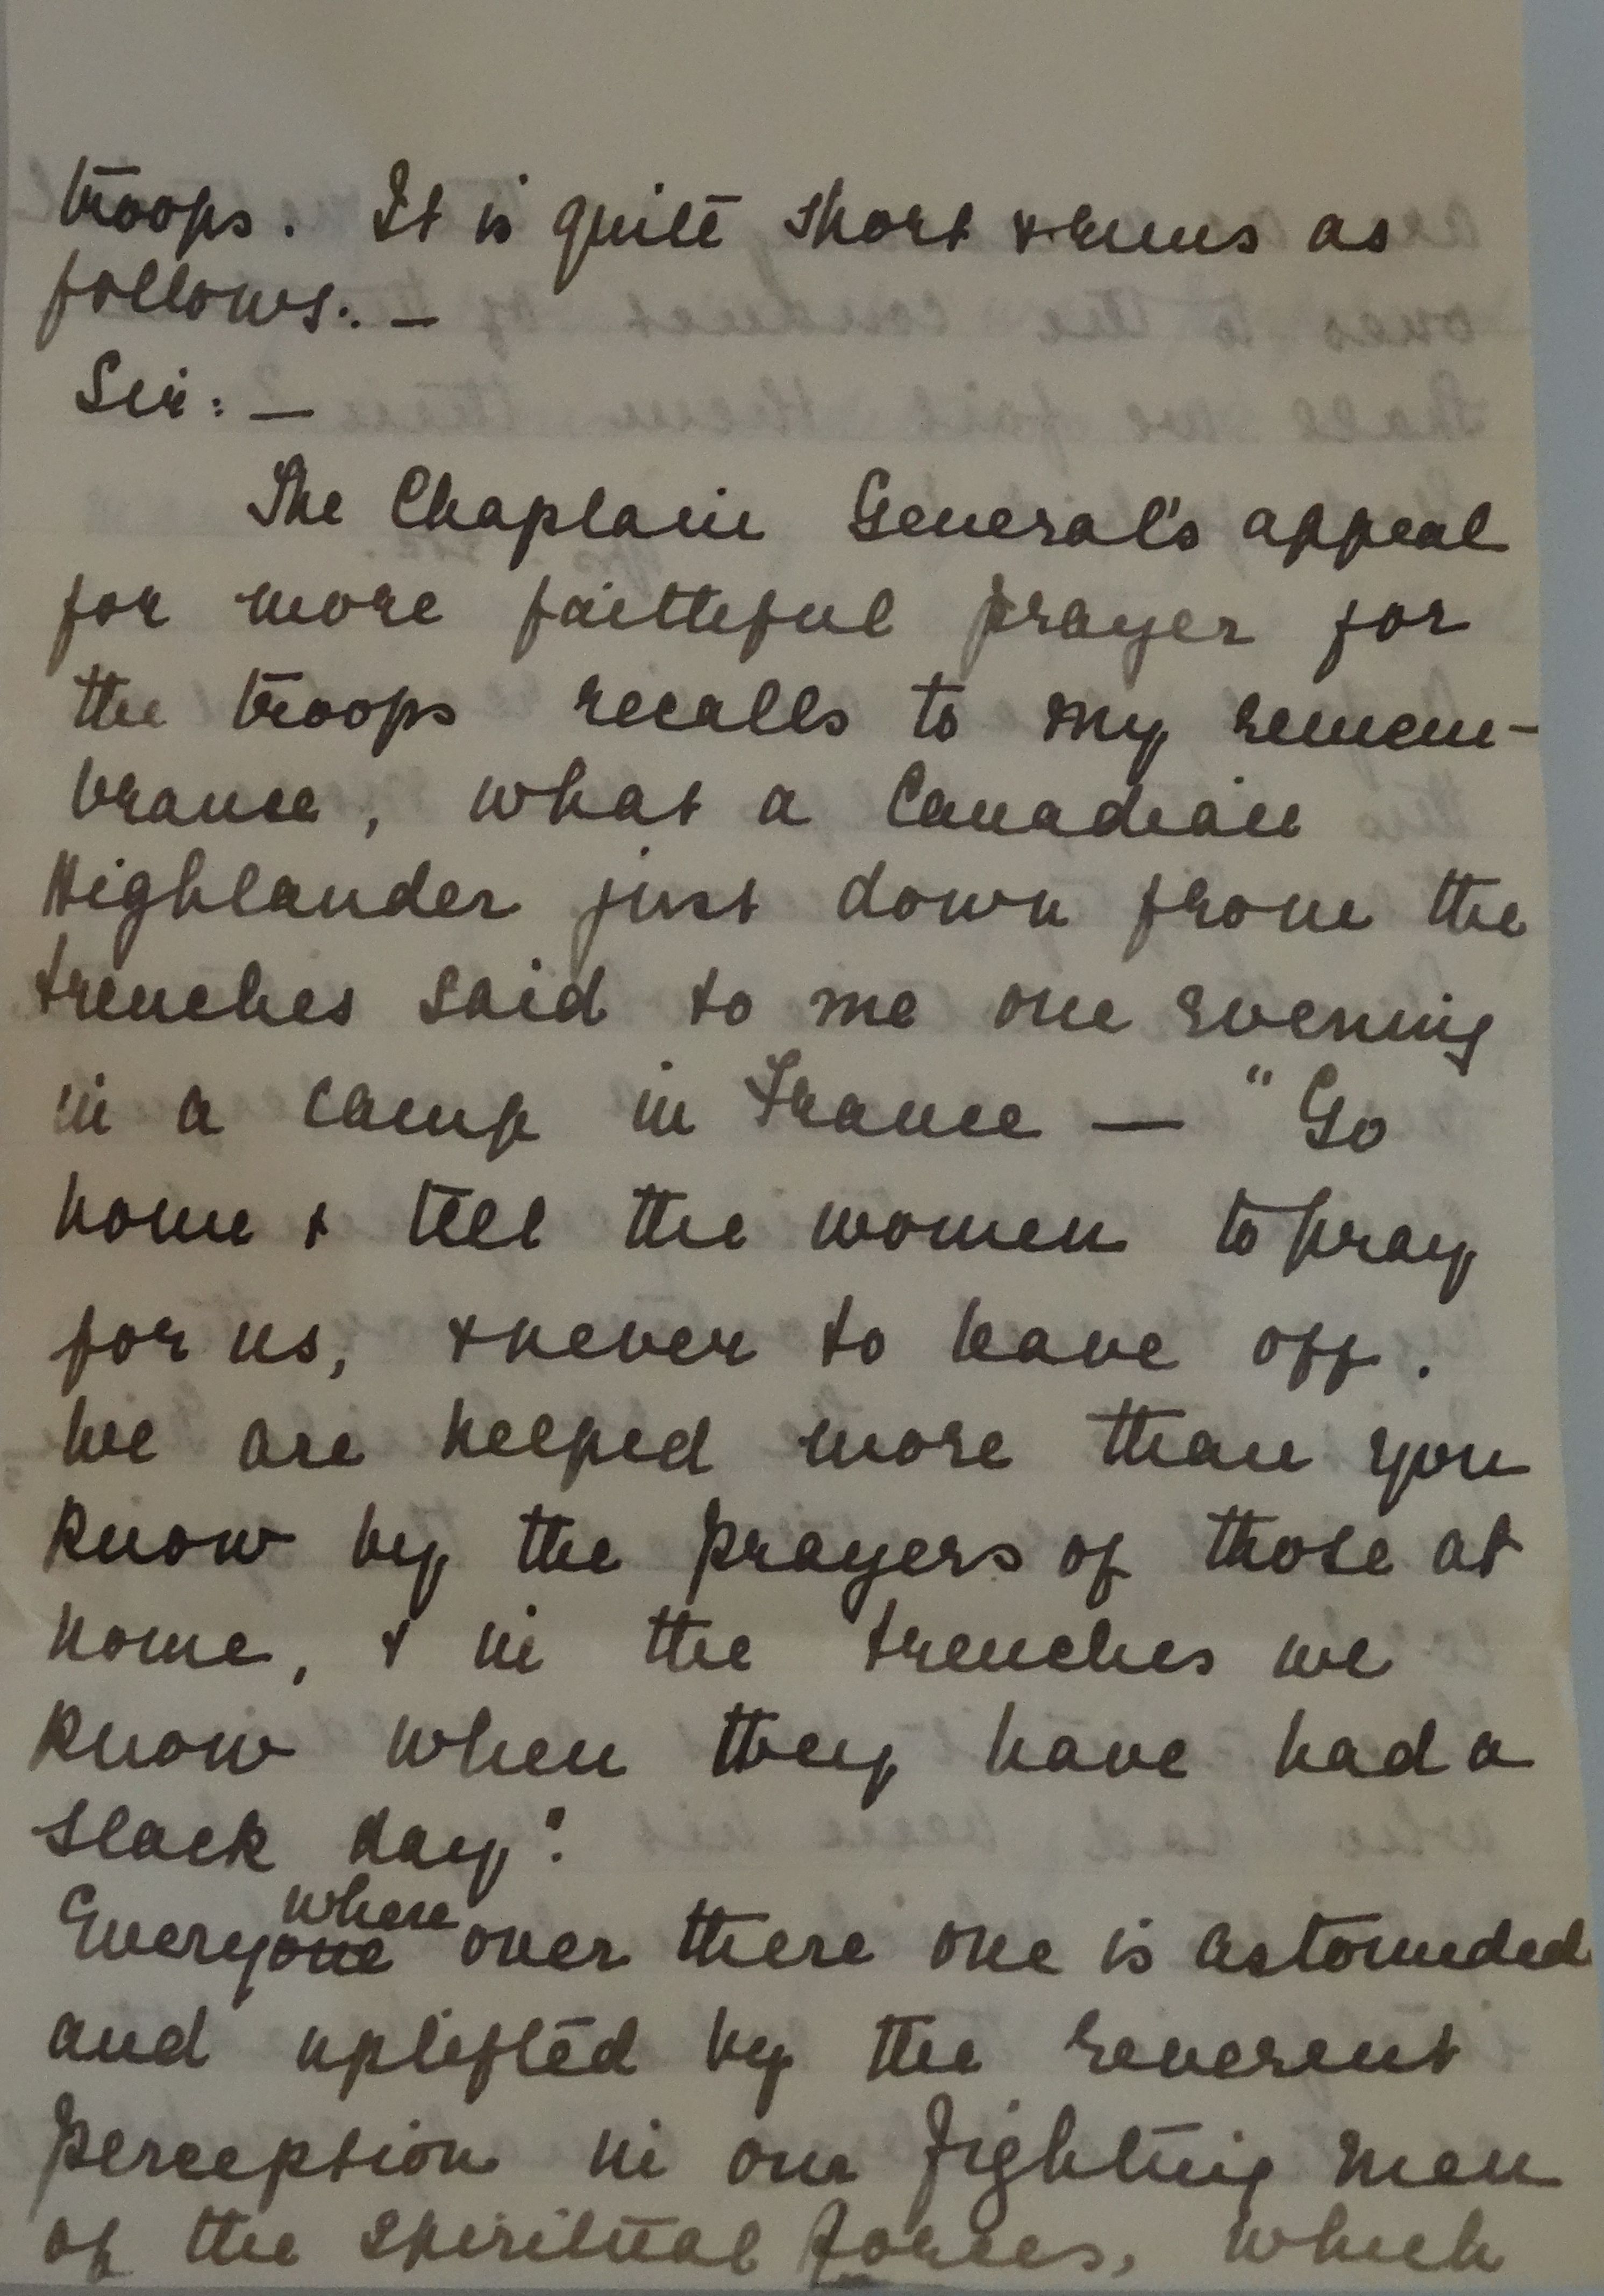 troops. It is quite short & runs as
follows:. —
Sir: —
The Chaplain General's appeal
for more faithful prayer for
the troops recalls to my remem-
brance, what a Canadian
Highlander just down from the
trenches said to me one evening
in a camp in France — "Go
home & tell the women to pray
for us, & never to leave off.
We are helped more than you
know by the prayers of those at
home, & in the trenches we
know when they have had a
slack day".
where
Everyone over there one is astounded
and uplifted by the reverent
perception in our fighting men
of the spiritual forces, which